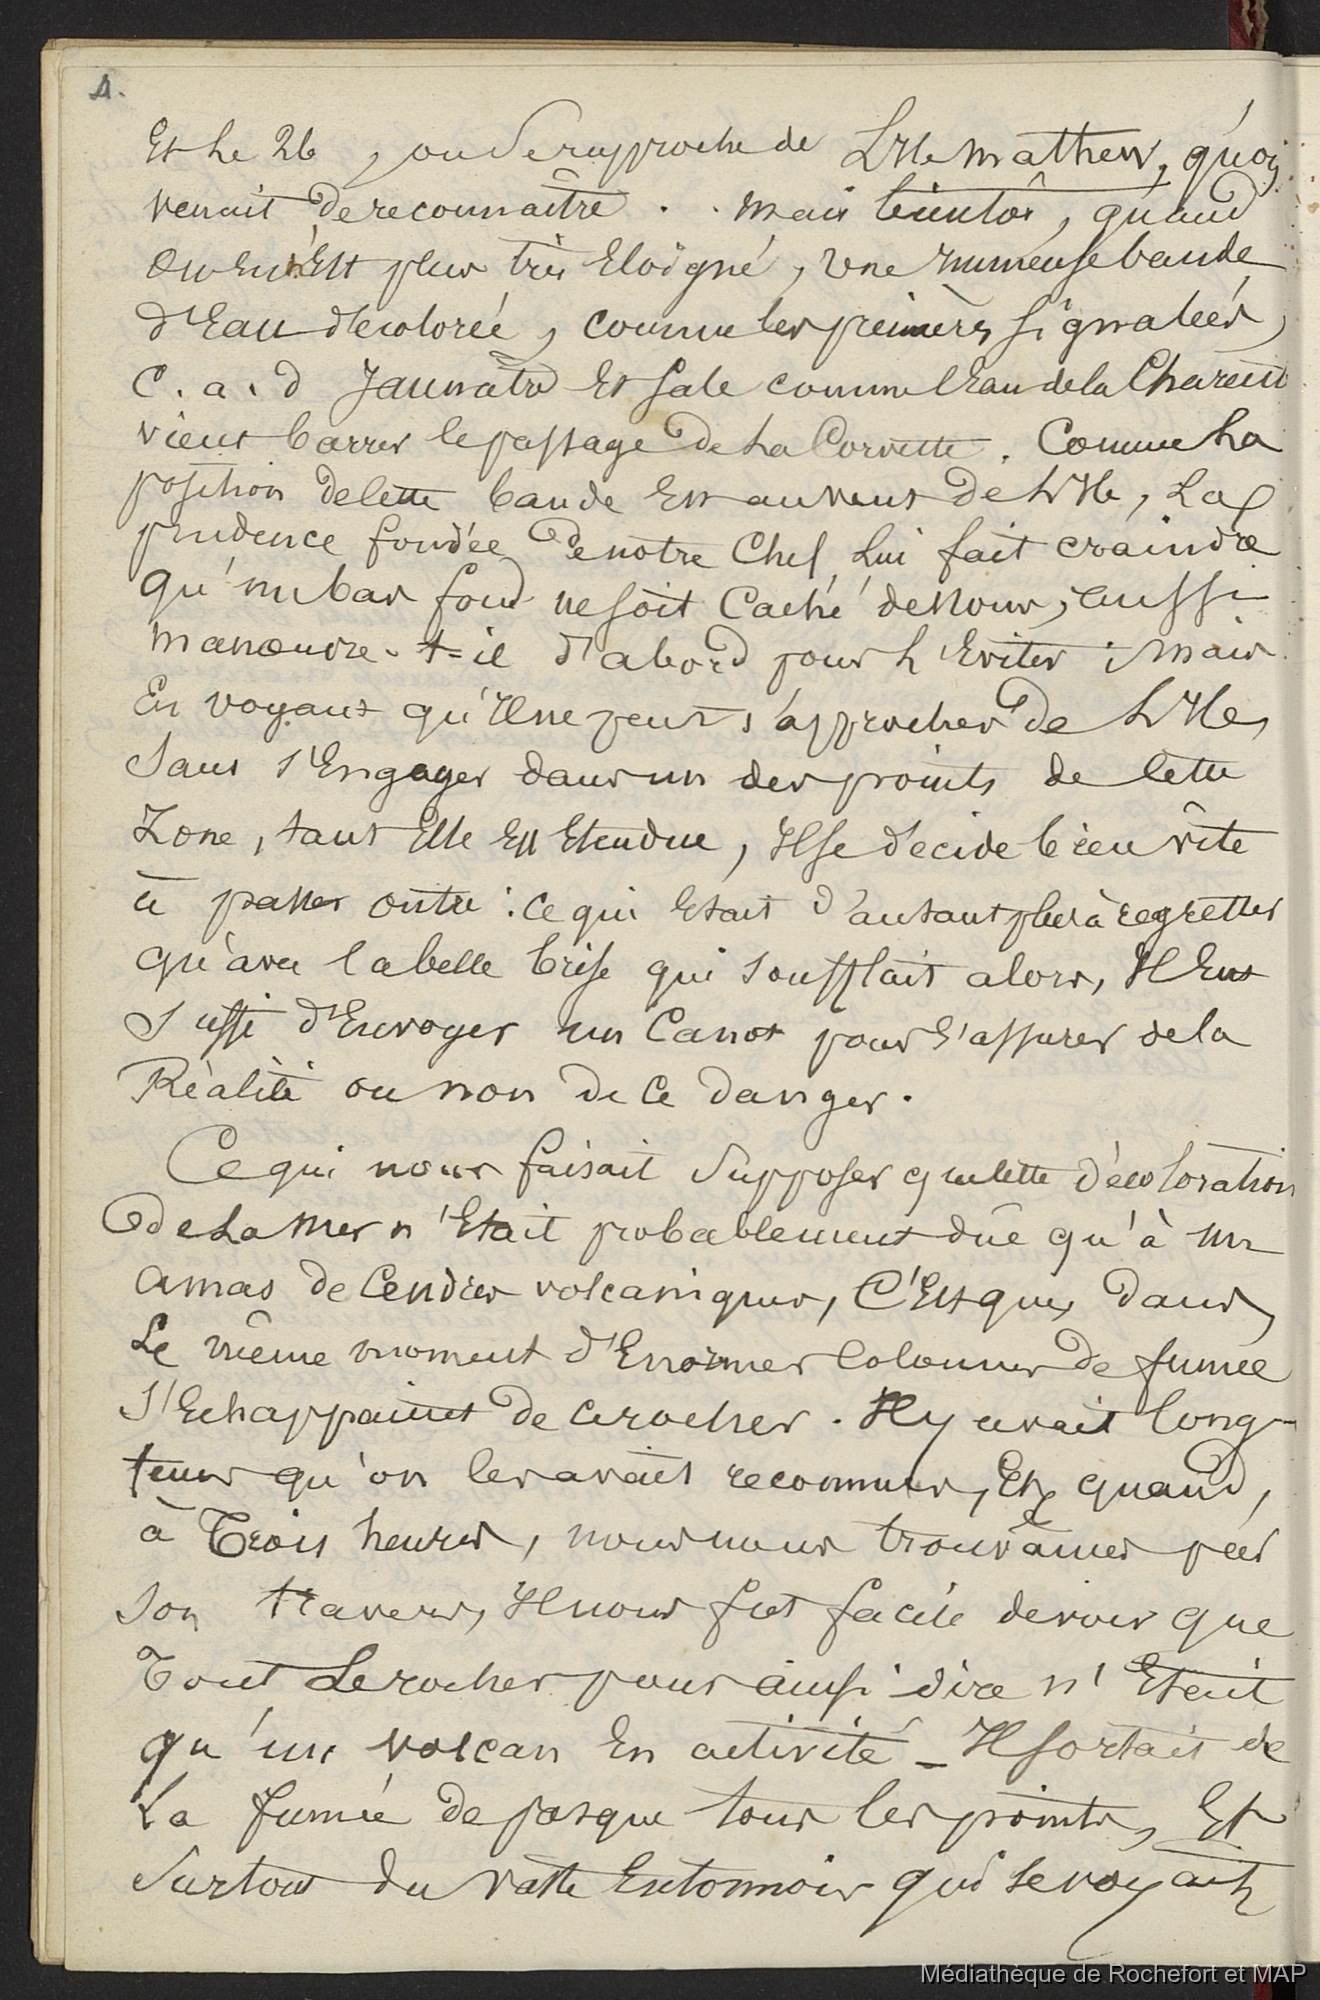 4.
Et le 26, on se rapproche de L'Ile Mathew, qu'on
venait de reconnaître . . mais bientôt, quand
on en n'Est plus très Eloigné, une immense bande
d'Eau décolorée, comme les premières signalées,
c. a. d Jaunâtre Et sale comme l'Eau de la Charente
vient barrer le passage de La Corvette. Comme La
position de cette bande Est au vent de L'Ile, La
prudence fondée de notre Chef Lui fait craindre
qu'un bas fond ne soit Caché dessous; aussi
manoeuvre-t-il d'abord pour L'Eviter; mais
En voyant qu'Il ne peut s'approcher de L'Ile,
Sans s'Engager dans un des points de Cette
Zone, tant Elle Est Etendue, Il se décide bien vîte
à passer outre : ce qui Etait d'autant plus à regretter
qu'avec la belle brise qui soufflait alors, Il Eut
suffi d'Envoyer un Canot pour s'assurer de la
Réalité ou non de ce danger.
Ce qui nous faisait Supposer que cette décoloration
de La Mer n'Etait probablement dûe qu'à un
amas de Cendres volcaniques, C'Est que, dans
Le même moment d'Enormes Colonnes de fumée
S'Echappaient de ce rocher. Il y avait long-
tems qu'on les avait reconnues, Et quand,
à Trois heures, nous nous trouvâmes par
son travers, Il nous fut facile de voir que
Tout Le rocher pour ainsi dire n'Etait
qu'un volcan En activité _ Il sortait de
La fumée de presque tous les points, Et
Surtout du vaste Entonnoir qui se voyait
Médiathèque de Rochefort et MAP